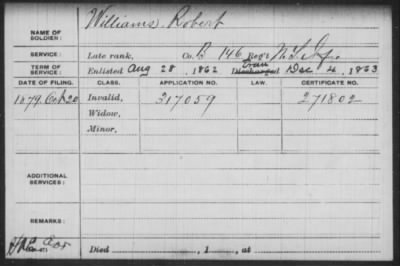 Williams, Robert
NAME OF SOLDIER:
SERVICE: Late rank, Co. B 146 Reg't N.Y. Inf.
TERM OF SERVICE: Enlisted Aug 28, 1862 Discharged Dec 4, 1863
DATE OF FILING. CLASS. APPLICATION NO. LAW. CERTIFICATE NO.
1879 Oct 20 Invalid, 317059 271802
Widow,
Minor,
ADDITIONAL SERVICES:
REMARKS:
Died , 1 , at